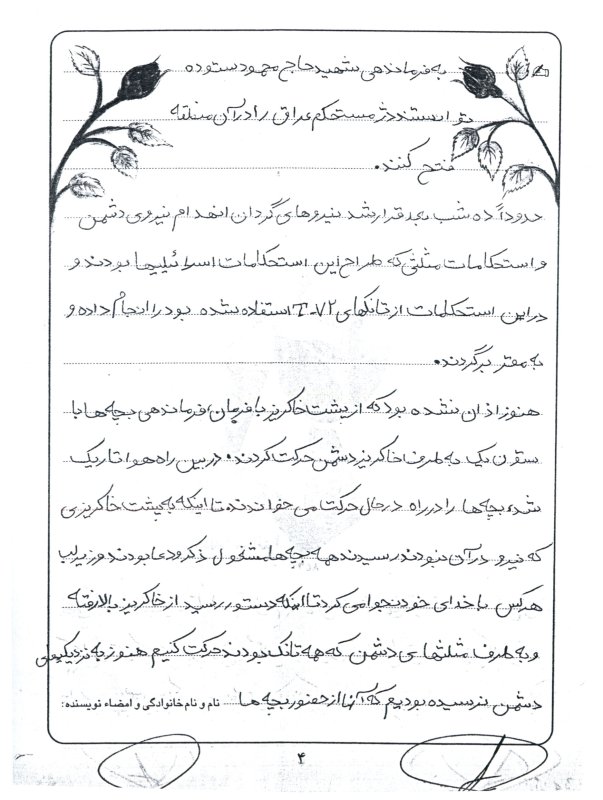 به فرماندهی شهید حاج محمود ستوده
توانستند دژ مستحکم عراق را در آن منطقه
فتح کنند.
حدوداً ده شب بعد قرار شد نیروهای گردان انهدام نیروی دشمن
و استحکامات مثلثی که طراح این استحکامات اسرائیلیها بودند و
در این استحکامات از تانکهای T-۷۲ استفاده شده بود را انجام داده و
به مقر برگردند.
هنوز اذان نشده بود که از پشت خاکریز با فرمان فرماندهی بچه ها با
ستون یک به طرف خاکریز دشمن حرکت کردند. در بین راه هوا تاریک
شد، بچه ها را در راه در حال حرکت می خواندند تا اینکه به پشت خاکریزی
که نیرو در آن نبودند رسیدند همه بچه ها مشغول ذکر و دعا بودند و زیر لب
هر کس با خدای خود نجوا می کرد تا اینکه دستور رسید از خاکریز بالا رفته
و به طرف مثلثهای دشمن که همه تانک بودند حرکت کنیم هنوز به نزدیکیهای
دشمن نرسیده بودیم که آنها از حضور بچه ها
نام و نام خانوادگی و امضاء نویسنده:
۴